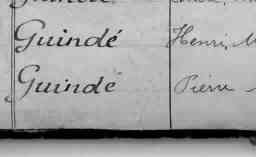 Guindé Henri, M
Guindé Pierre